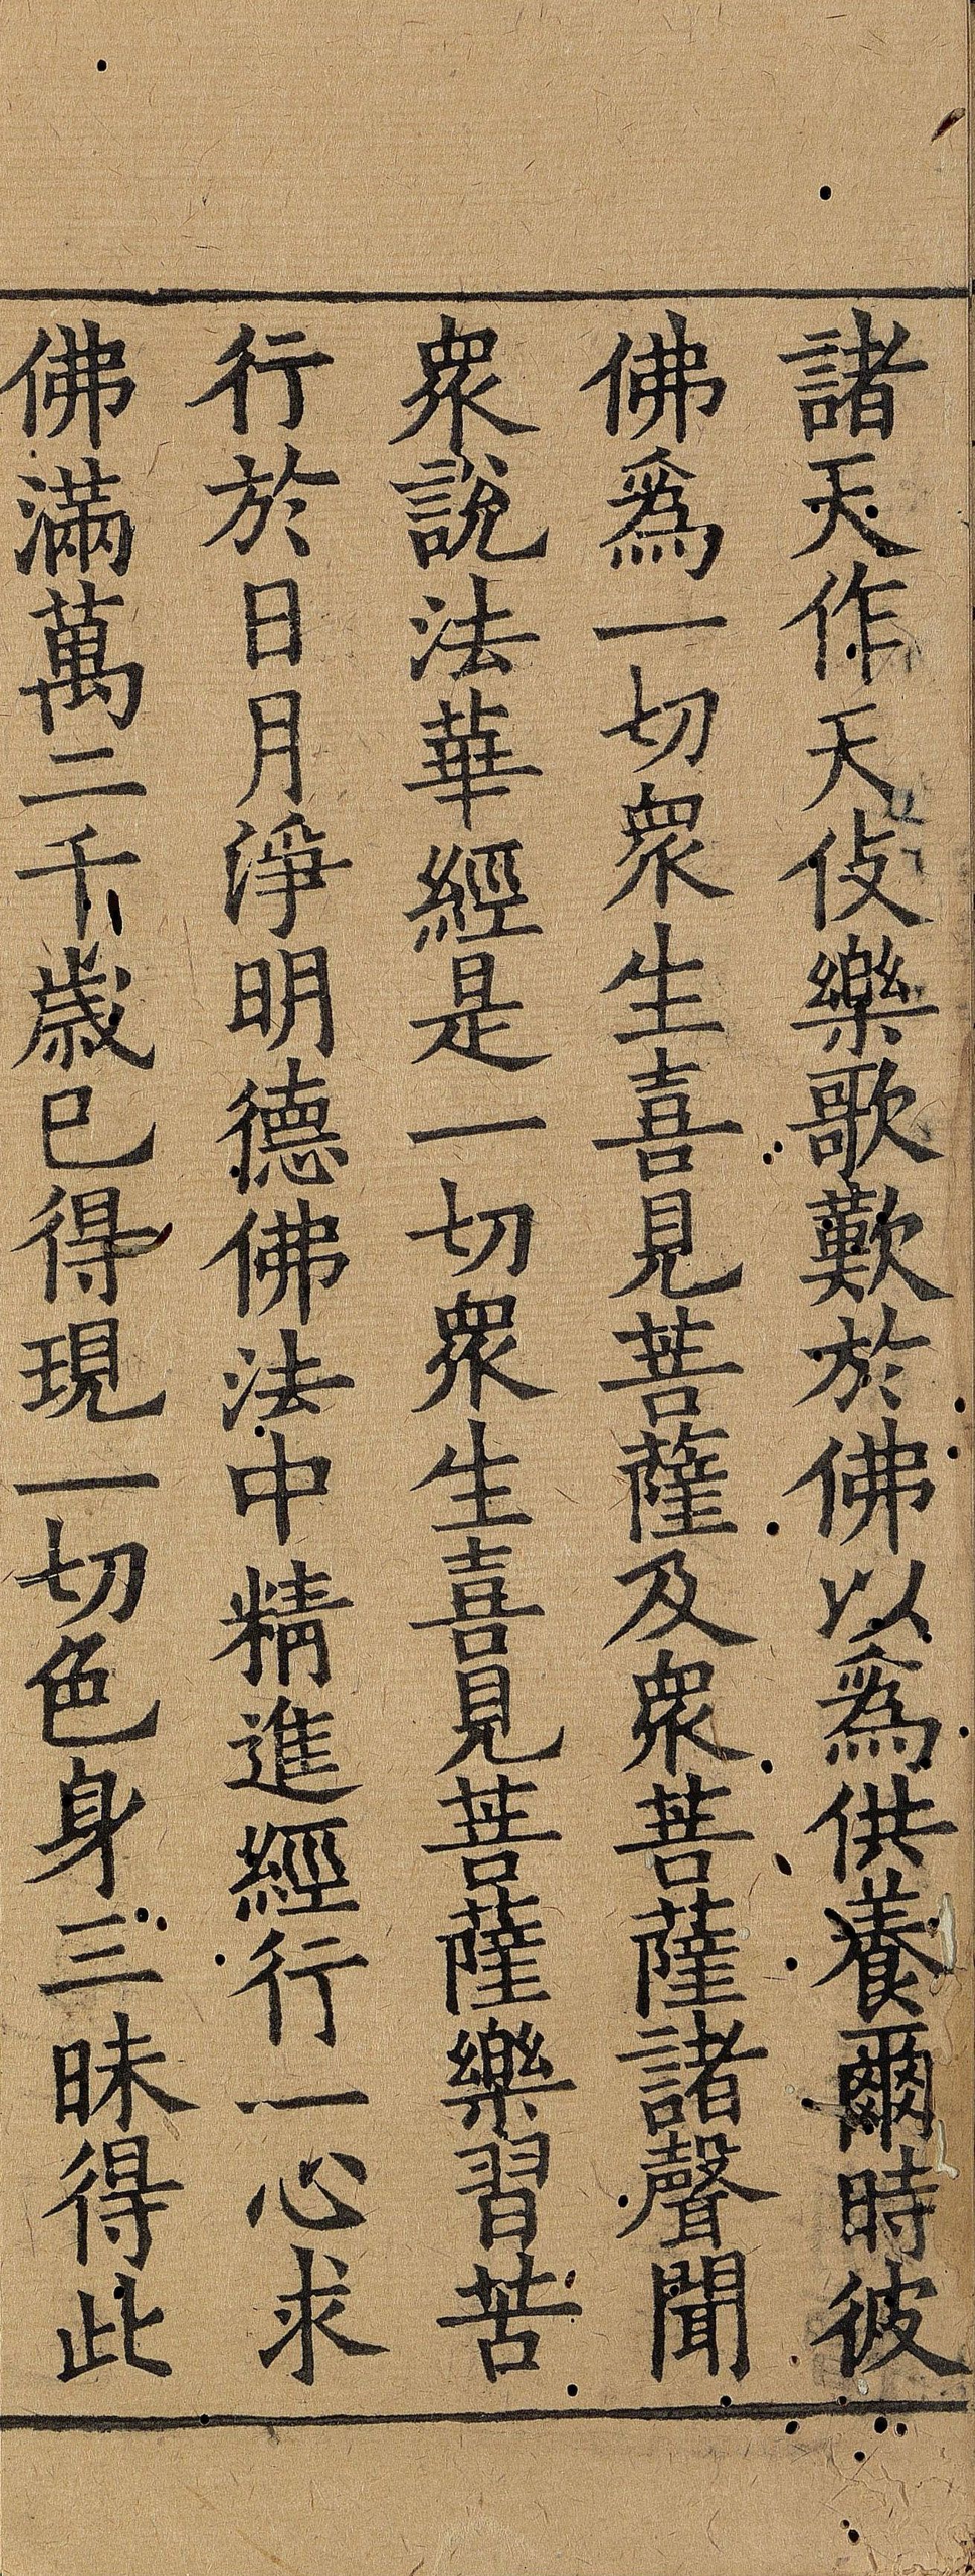 諸天作天伎樂歌歎於佛以爲供養爾時彼
佛爲一切衆生喜見菩薩及衆菩薩諸聲聞
衆説法華經是一切衆生喜見菩薩樂習苦
行於日月淨明德佛法中精進經行一心求
佛滿萬二千歲已得現一切色身三昧得此